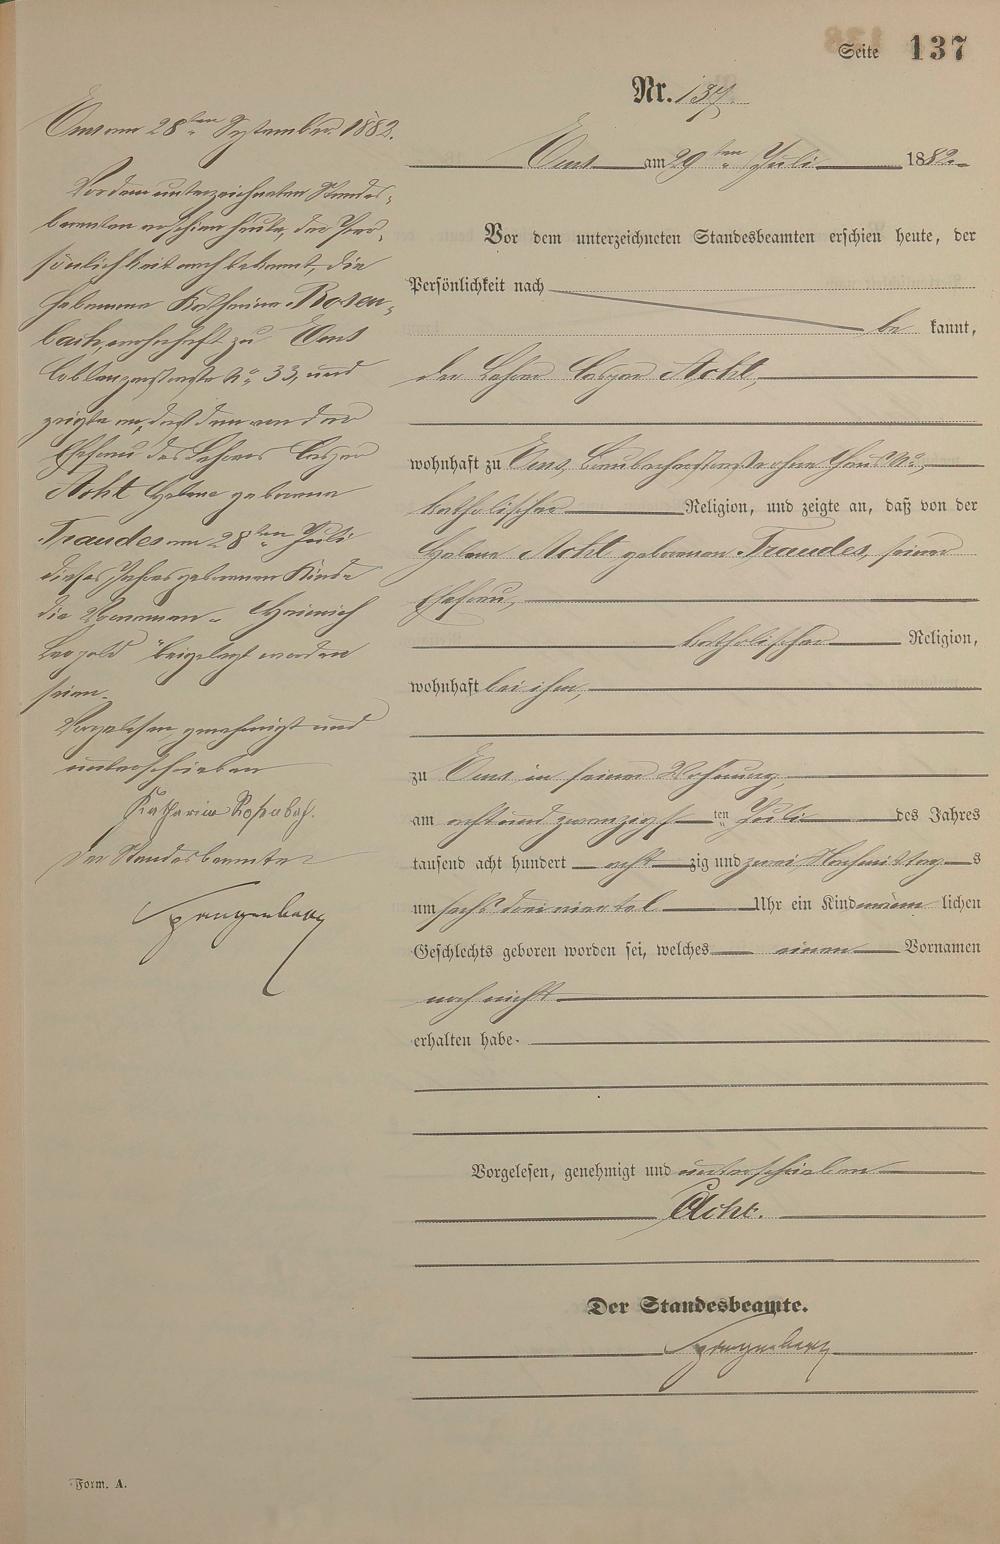 Seite 137
Nr. 137.
Ems am 29ten Juli 1882.
Vor dem unterzeichneten Standesbeamten erschien heute, der
Persönlichkeit nach
be kannt,
der Lehrer Caspar Acht,
wohnhaft zu Ems, ohne Haus No.
katholischer Religion, und zeigte an, daß von der
Helene Acht geborenen Traudes, seiner
Ehefrau,
katholischer Religion,
wohnhaft bei ihm,
zu Ems in seiner Wohnung,
am acht und zwanzigs ten Juli des Jahres
tausend acht hundert acht zig und zwei Nachmittag s
um sechs drei viertel Uhr ein Kind männ lichen
Geschlechts geboren worden sei, welches einen Vornamen
noch nicht
erhalten habe.
Vorgelesen, genehmigt und unterschrieben
Acht.
Der Standesbeamte.
Ems am 28ten September 1882.
Vor dem unterzeichneten Standes-
beamten erschien heute, der Per-
sönlichkeit nach bekannt, die
Hebamme Katharina Rosen-
bach, wohnhaft zu Ems
Coblenzerstraße No 33, und
zeigte an, daß dem von der
Ehefrau des Lehrers Caspar
Acht Helene geborene
Traudes am 28ten Juli
dieses Jahres geborenen Kinde
die Vornamen "Heinrich
Leopold" beigelegt worden
seien.
Vorgelesen, genehmigt und
unterschrieben
Katharina Rosenbach.
Der Standesbeamte
Form. A.